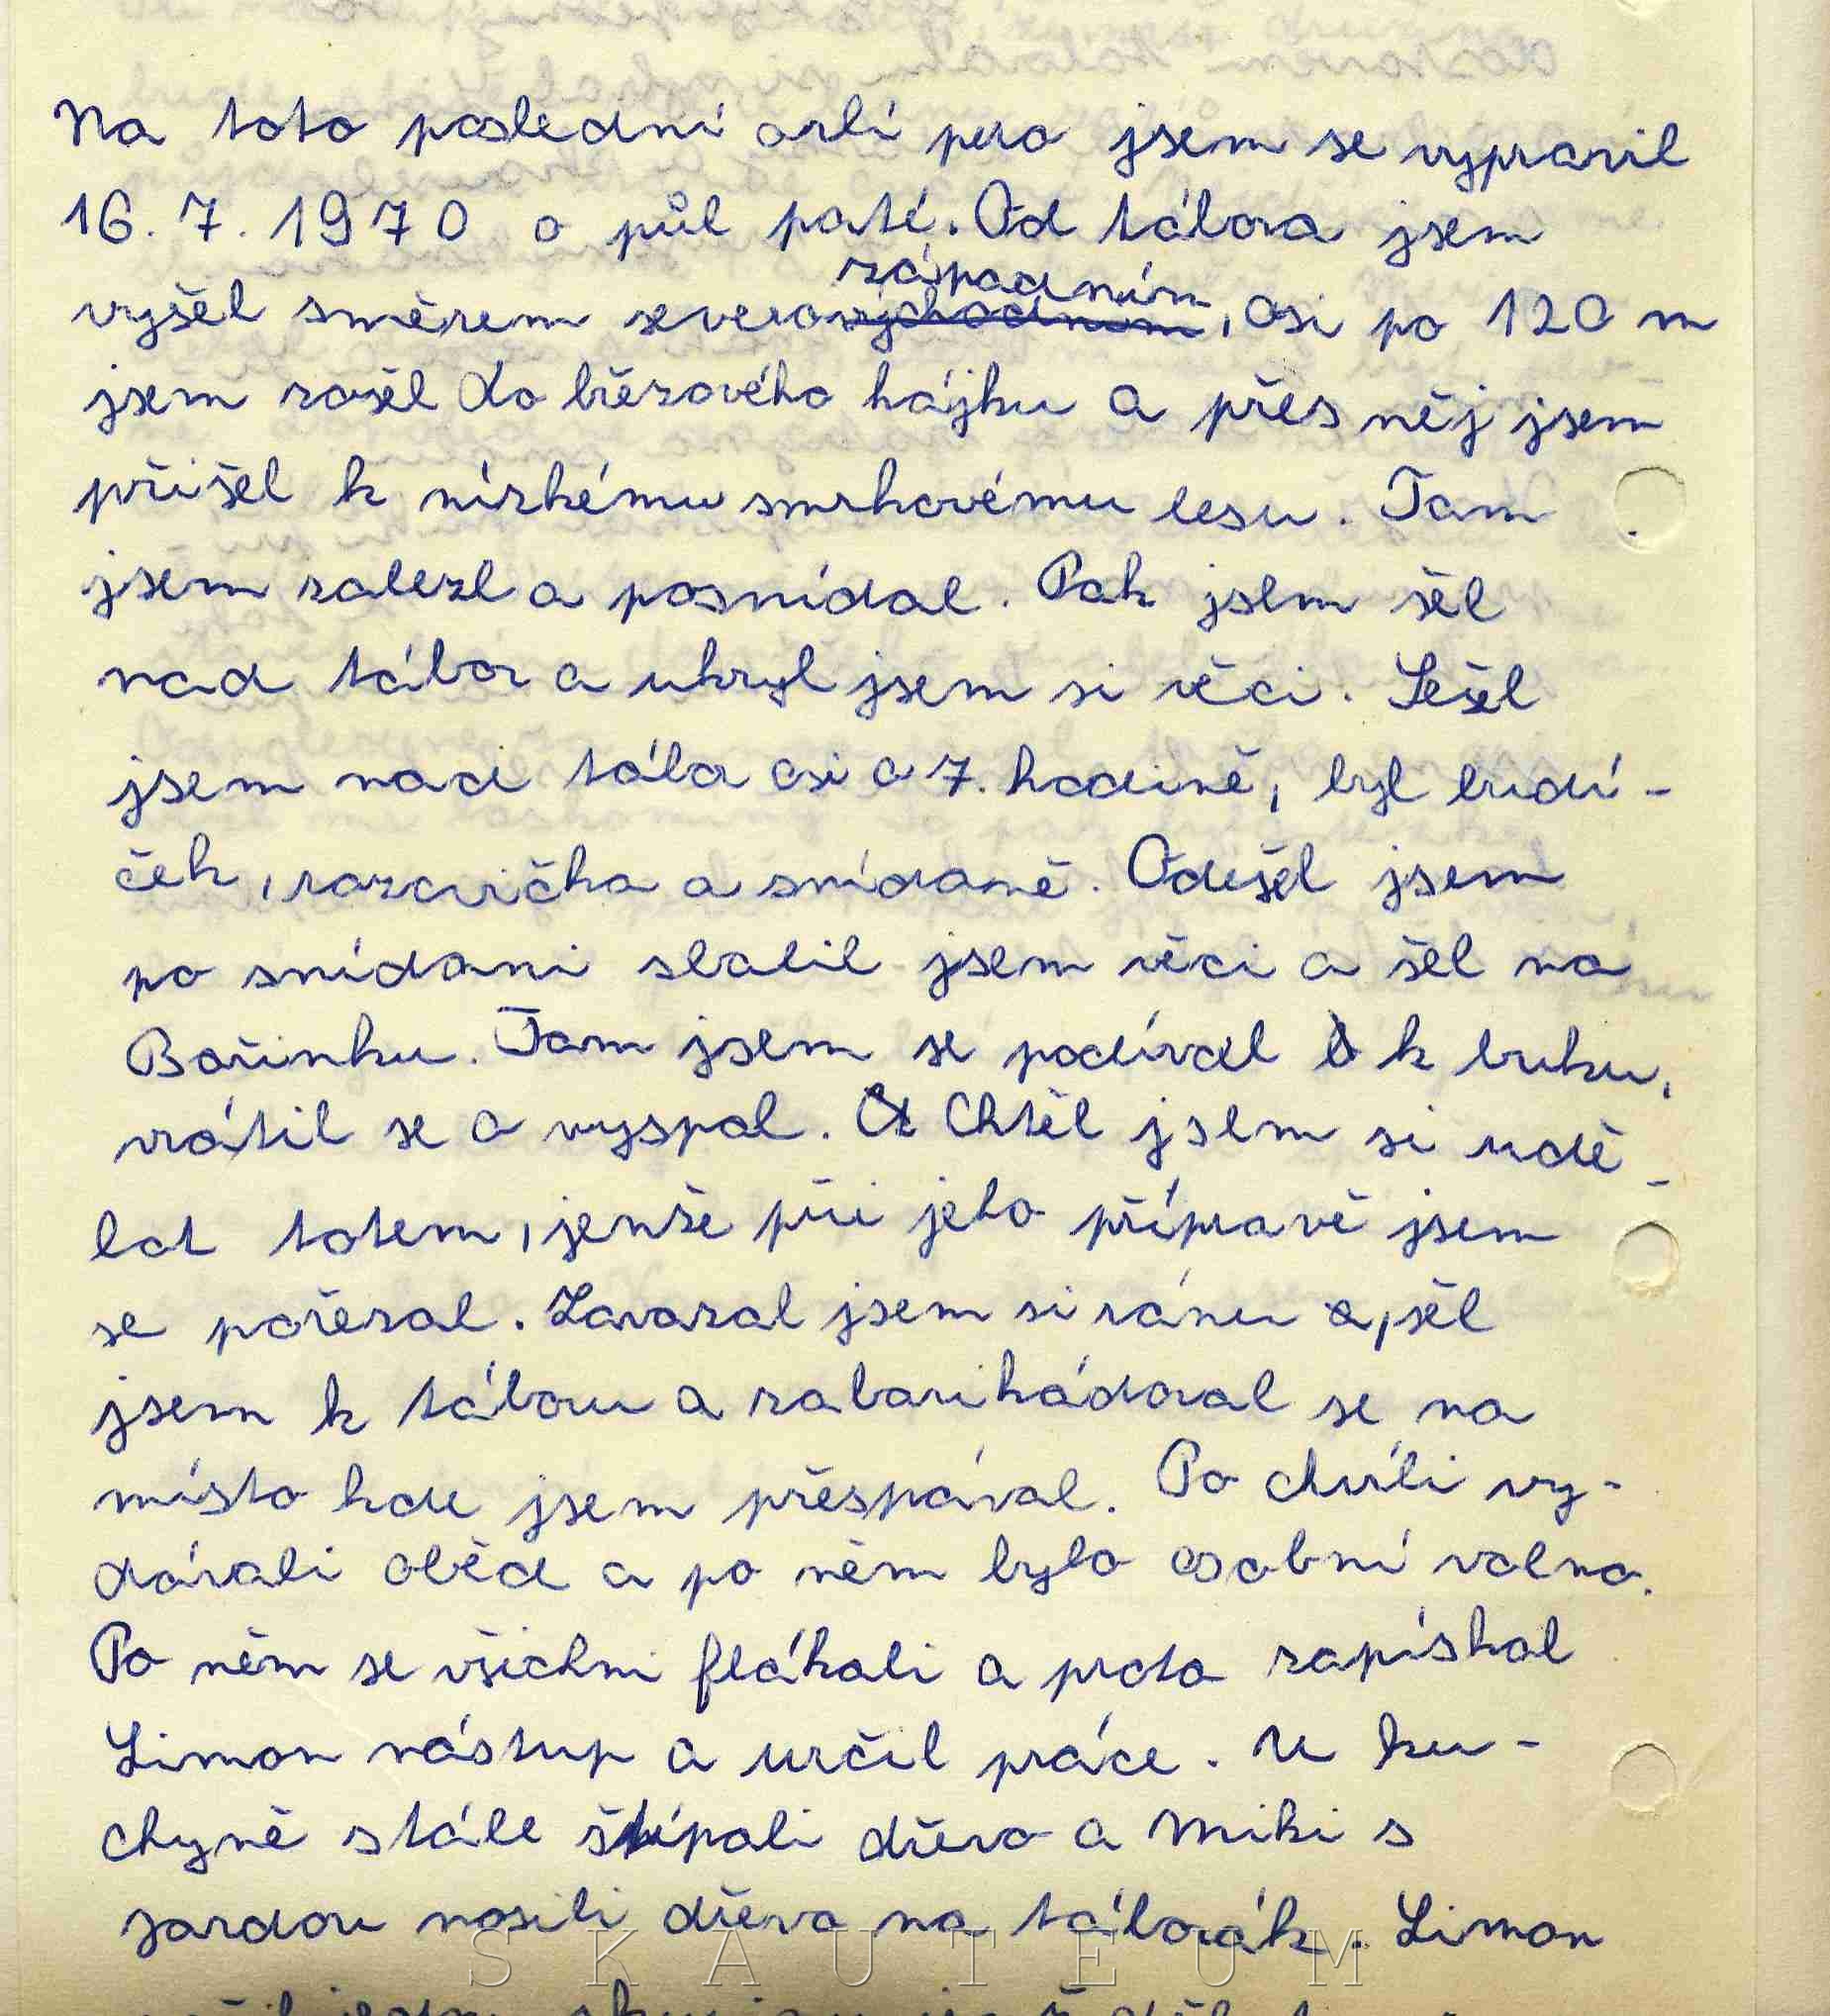 Na toto poslední orlí pero jsem se vypravil
16. 7. 1970 o půl paté. Od tábora jsem
západním
vyšel směrem severovýchodním, asi po 120 m
jsem zašel do březového hájku a přes něj jsem
přišel k nízkému smrkovému lesu. Tam
jsem zalezl a posnídal. Pak jsem šel
nad tábor a ukryl jsem si věci. Sešel
jsem nad tábor asi o 7. hodině, byl budí-
ček, rozcvička a snídaně. Odešel jsem
po snídani sbalil jsem věci a šel na
Bařinku. Tam jsem se podíval k buku,
vrátil se a vyspal. Chtěl jsem si udě-
lat totem, jenže při jeho přípravě jsem
se pořezal. Zavázal jsem si ránu a, šel
jsem k táboru a zabarikádoval se na
místo kde jsem přespával. Po chvíli vy-
dávali oběd a po něm bylo osobní volno.
Po něm se všichni flákali a proto zapískal
Limon nástup a určil práce. U ku-
chyně stále štípali dřevo a Miki s
Jardou nosili dřevo na táborák. Limon
SKAUTEUM